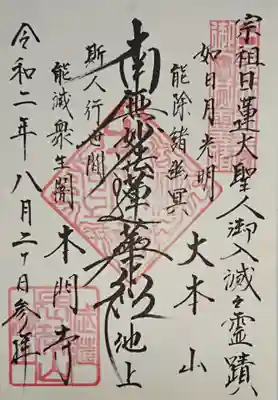 宗祖日蓮大聖人御入滅之霊蹟
如日月光明
能除諸幽冥
大本山
南無妙法蓮華経
池上
斯人行世間
能滅衆生闇
本門寺
令和二年八月二十日参拝